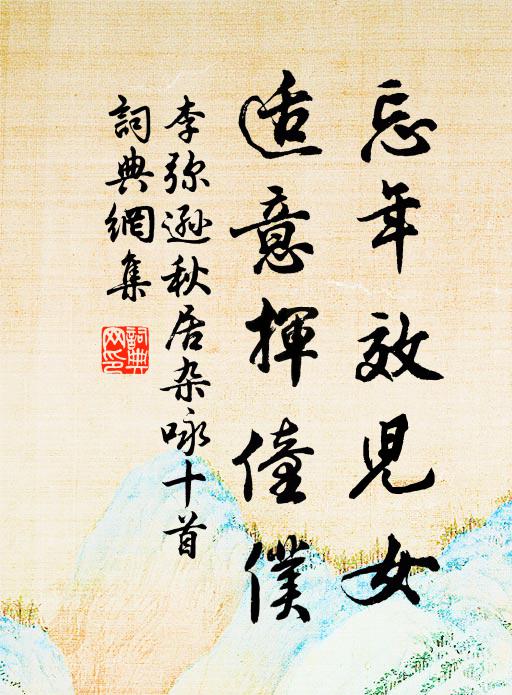 忘年效兒女
适意揮僮僕
李弥遜秋居杂咏十首
詞典網集
詞典網印